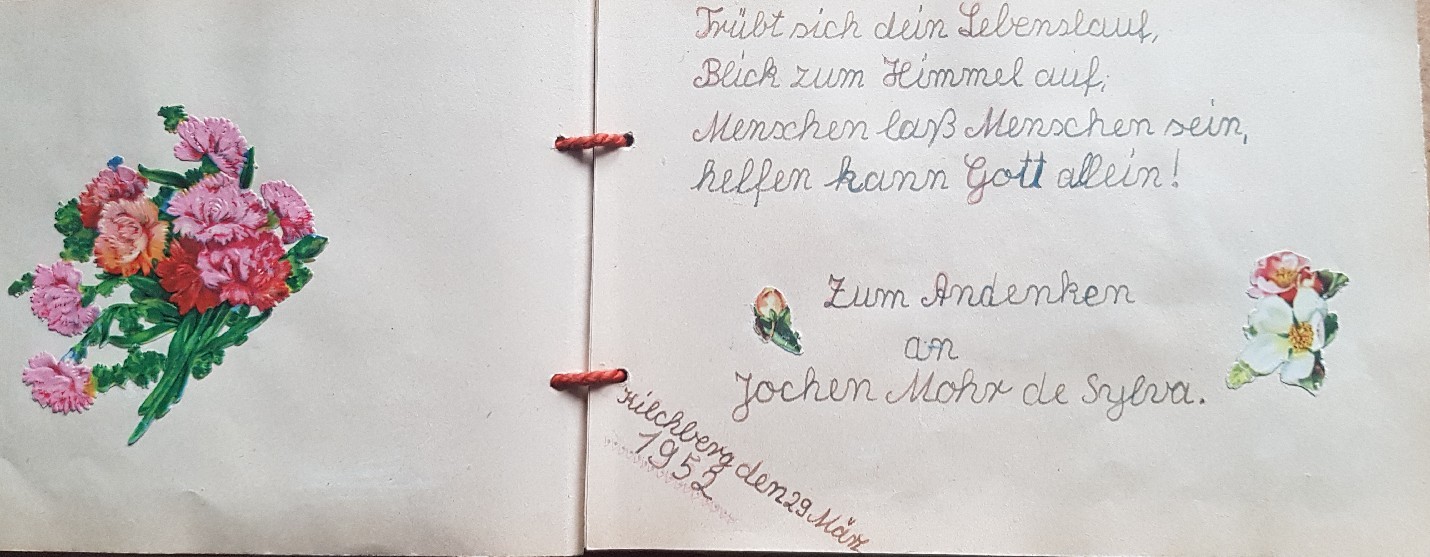 Trübt sich dein Lebenslauf,
Blick zum Himmel auf;
Menschen laß Menschen sein,
helfen kann Gott allein!
Zum Andenken
an
Jochen Mohr de Sylva.
Kilchberg den 29 März
1952